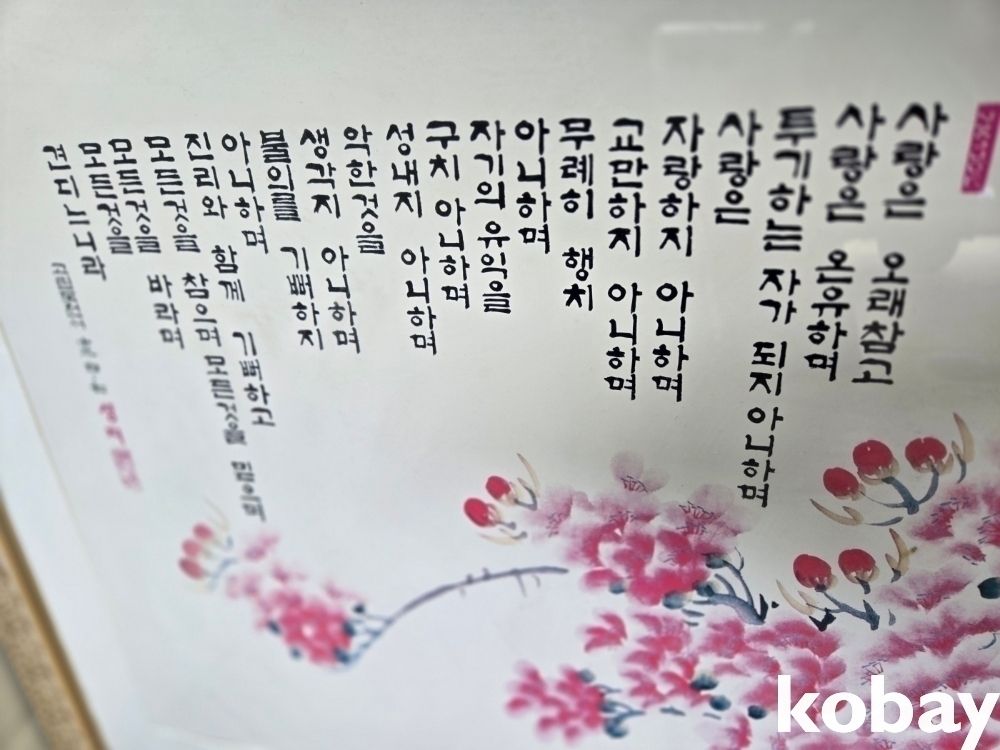 사랑은 오래참고
사랑은 온유하며
투기하는 자가 되지 아니하며
사랑은
자랑하지 아니하며
교만하지 아니하며
무례히 행치
아니하며
자기의 유익을
구치 아니하며
성내지 아니하며
악한것을
생각지 아니하며
불의를 기뻐하지
아니하며
진리와 함께 기뻐하고
모든것을 참으며 모든것을 믿으며
모든것을 바라며
모든것을
견디느니라
kobay